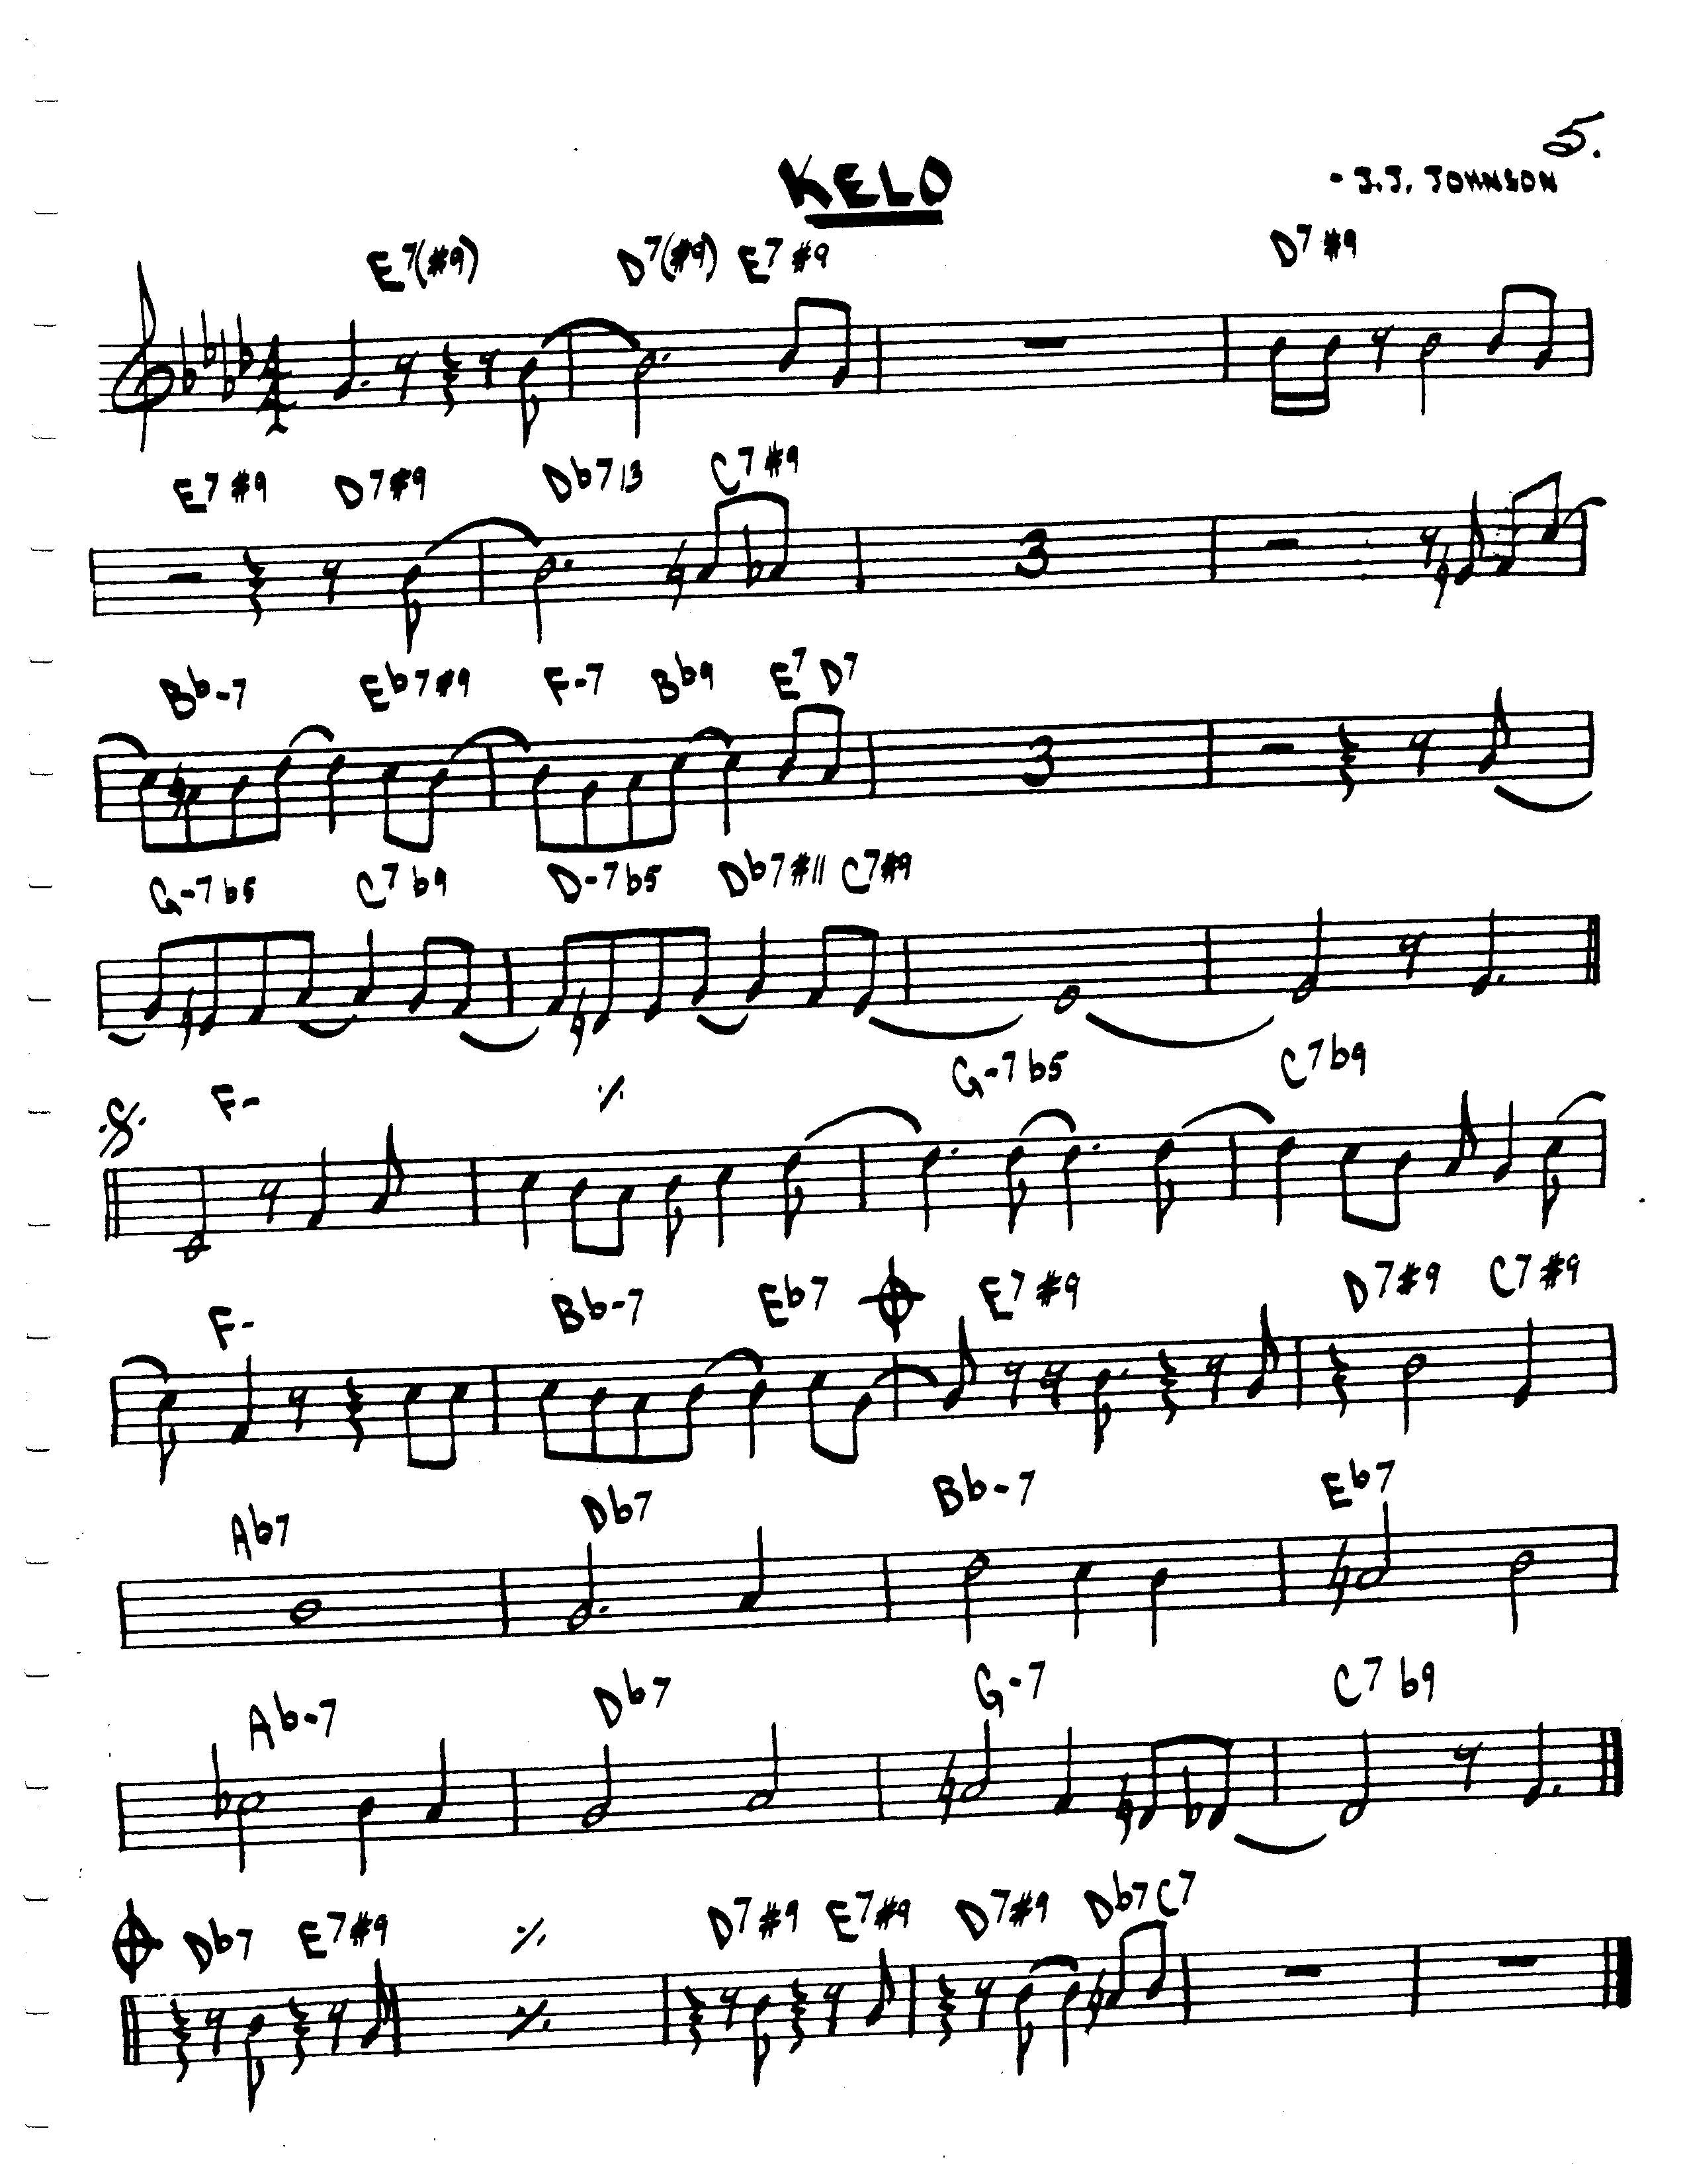 5.
KELO
- J.J. JOHNSON
E7(#9) D7(#9) E7#9 D7#9
4 4
E7#9 D7#9 Db713 C7#9
3
Bb-7 Eb7#9 F-7 Bb9 E7 D7
3
G-7b5 C7b9 D-7b5 Db7#11 C7#9
F- G-7b5 C7b9
F- Bb-7 Eb7 E7#9 D7#9 C7#9
Ab7 Db7 Bb-7 Eb7
Ab-7 Db7 G-7 C7b9
Db7 E7#9 D7#9 E7#9 D7#9 Db7 C7